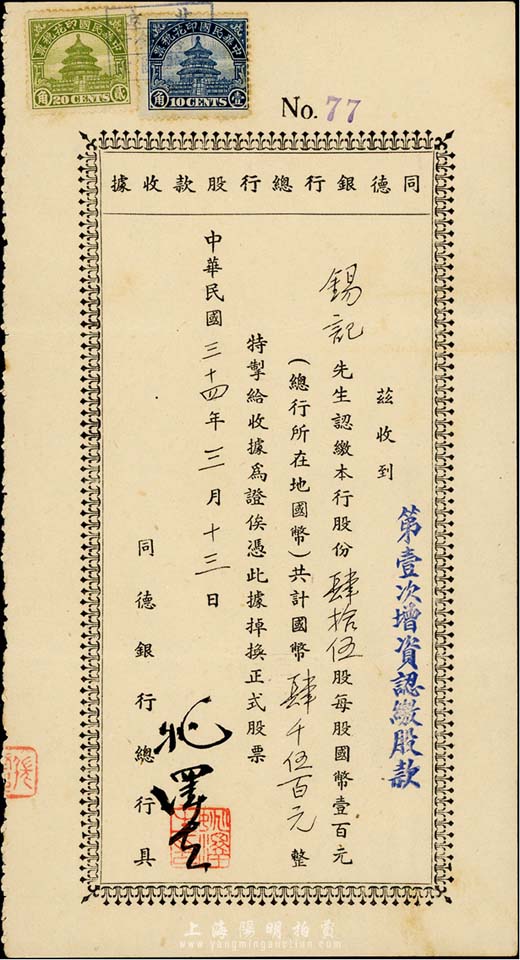 中華民國印花稅票
貳角
20 CENTS
中華民國印花稅票
壹角
10 CENTS
No. 77
同德銀行總行股款收據
第壹次增資認繳股款
茲收到
錫記先生認繳本行股份肆拾伍股每股國幣壹百元
(總行所在地國幣)共計國幣肆千伍百元整
特掣給收據爲證俟憑此據掉換正式股票
中華民國三十四年三月十三日
同德銀行總行具
上海陽明拍賣
www.yangmingauction.com